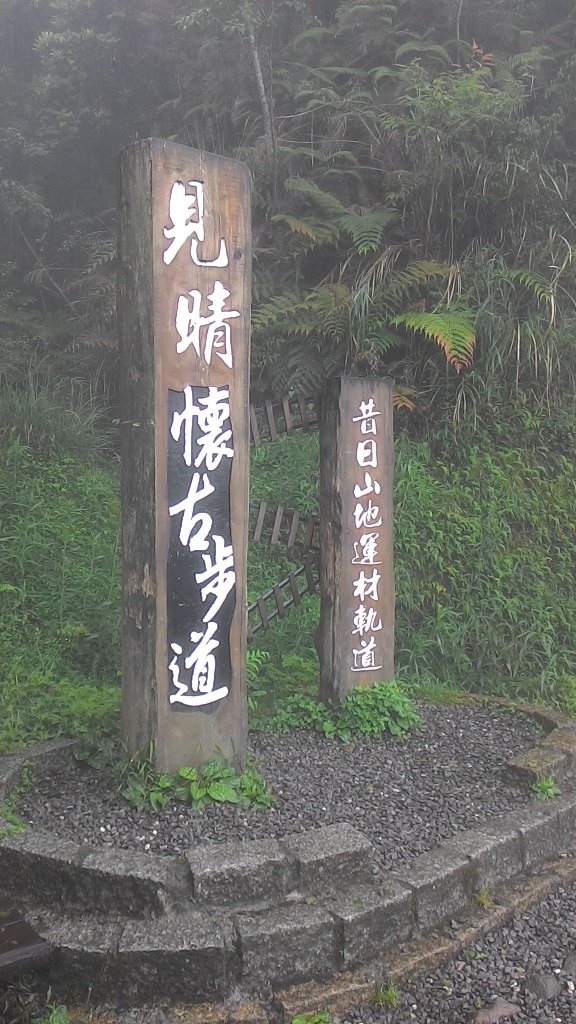 見晴懷古步道
昔日山地運材軌道